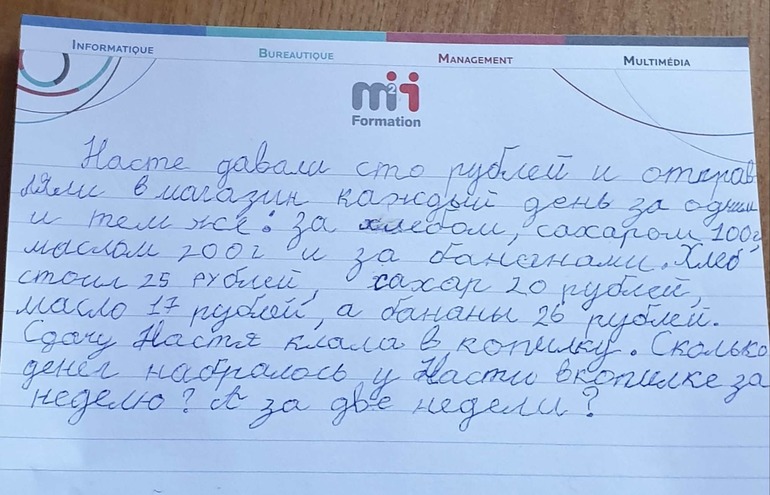 INFORMATIQUE BUREAUTIQUE MANAGEMENT MULTIMÉDIA
m2i
Formation
Насте давали сто рублей и отправ
ляли в магазин каждый день за одним
и тем же: за хлебом, сахаром 100г,
маслом 200г и за бананами. Хлеб
стоил 25 рублей, сахар 20 рублей,
масло 17 рублей, а бананы 26 рублей.
Сдачу Настя клала в копилку. Сколько
денег набралось у Насти в копилке за
неделю? А за две недели?